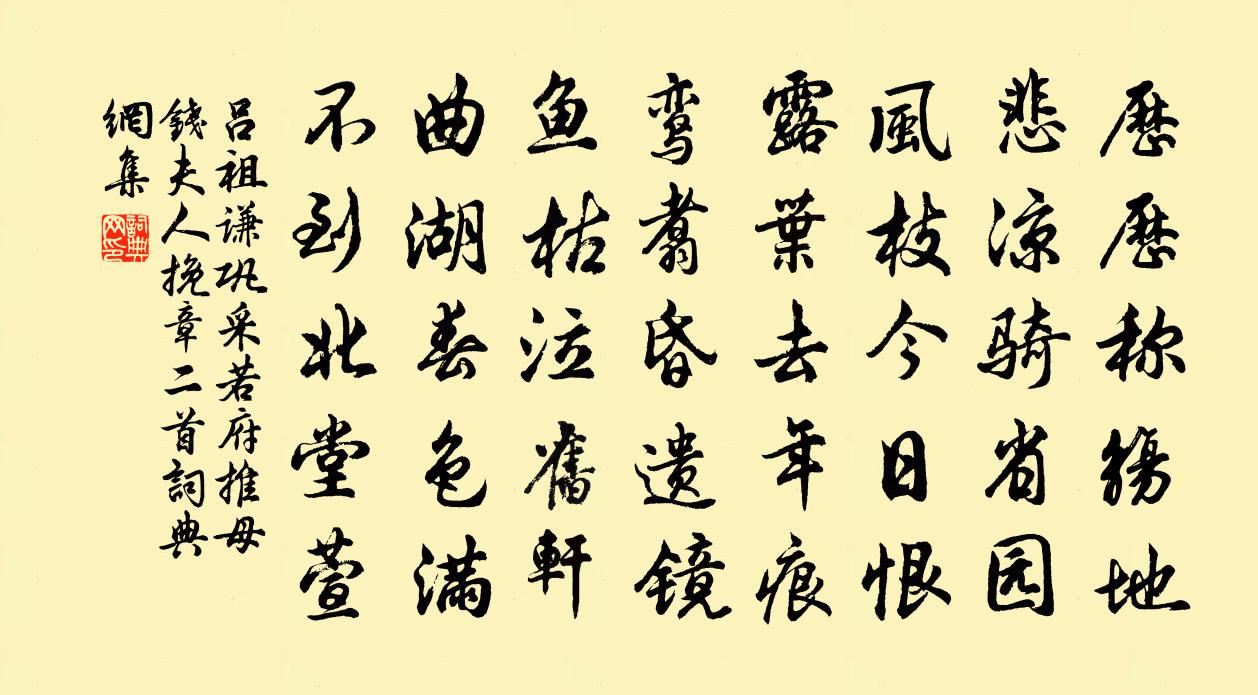 歷歷称觴地
悲涼骑省园
風枝今日恨
露葉去年痕
鸾翥昏遗镜
鱼枯泣舊軒
曲湖春色满
不到北堂萱
吕祖谦巩采若府推母
錢夫人挽章二首詞典
網集
詞典
网印